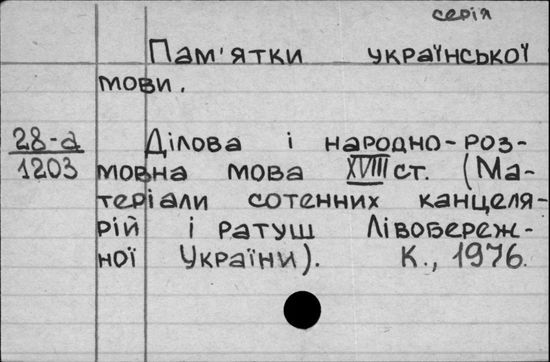 серія
Пам'ятки української
мови.
28-а Ділова і народно-роз-
1203 мовна мова XVIII ст. (Ма-
теріали сотенних канцеля-
рій і ратуш Лівобереж-
ної України). К., 1976.